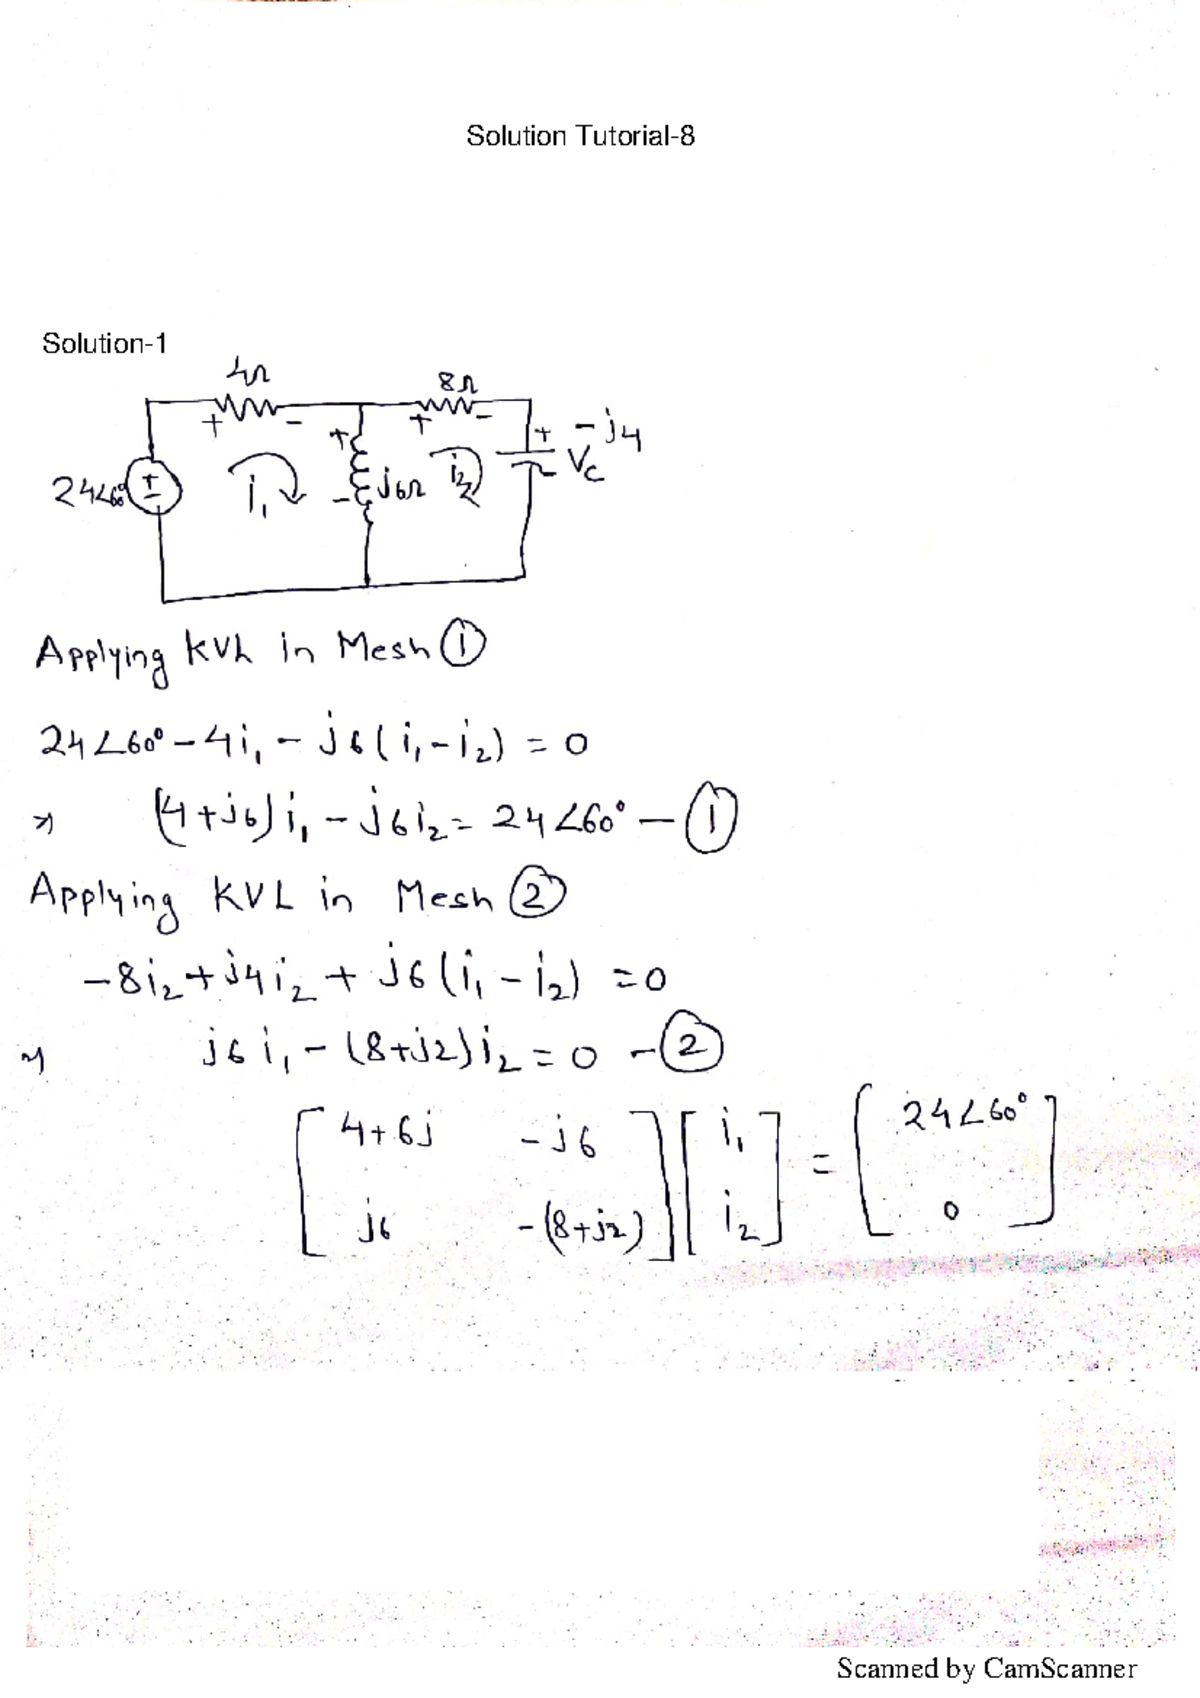 Solution Tutorial-8
Solution-1
4Ω
8Ω
+ -
+ -
24∠60°
i₁
+
-
j6Ω
i₂
+
Vc
-j4
-
Applying KVL in Mesh ①
24∠60° - 4i₁ - j6(i₁-i₂) = 0
⇒ (4+j6)i₁ - j6i₂ = 24∠60° - ①
Applying KVL in Mesh ②
-8i₂ + j4i₂ + j6(i₁ - i₂) = 0
⇒ j6i₁ - (8+j2)i₂ = 0 - ②
[4+6j -j6] [i₁] = [24∠60°]
[j6 -(8+j2)] [i₂] [0]
Scanned by CamScanner